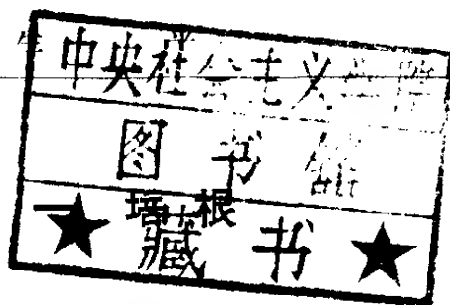 中央社会主义学院
图书馆
培根
★藏书★